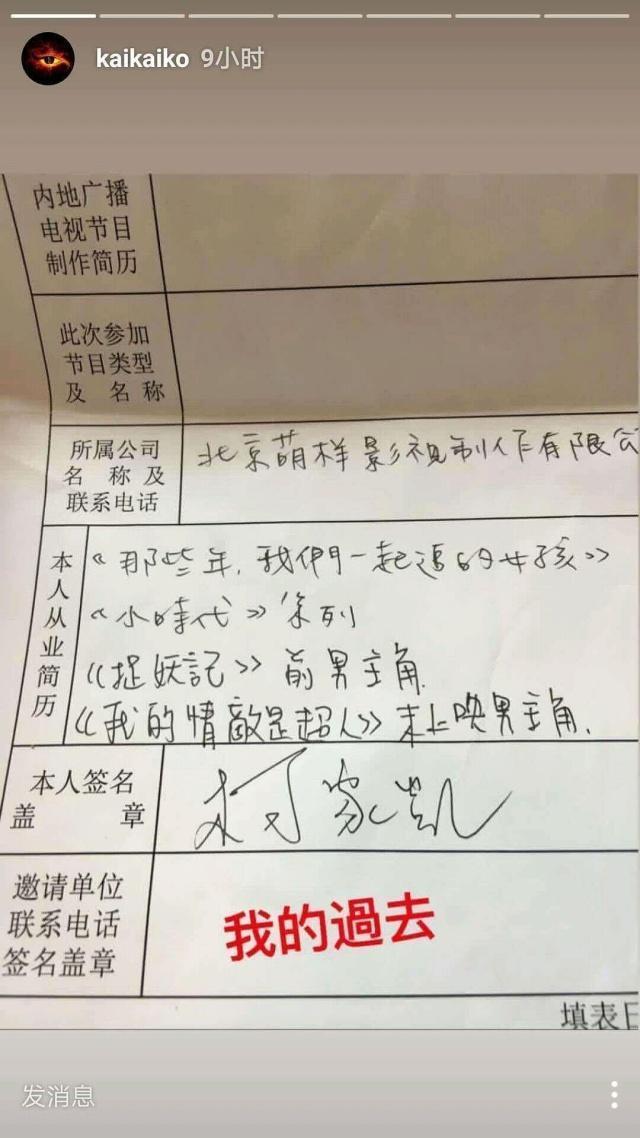 kaikaiko 9小时
内地广播
电视节目
制作简历
此次参加
节目类型
及 名 称
所属公司
名 称 及
联系电话
北京萌样影视制作有限公
本人从业简历
《那些年，我們一起追的女孩》
《小時代》系列
《捉妖記》前男主角
《我的情敵是超人》未上映男主角.
本人签名
盖 章
柯家凯
邀请单位
联系电话
签名盖章
我的過去
填表日
发消息